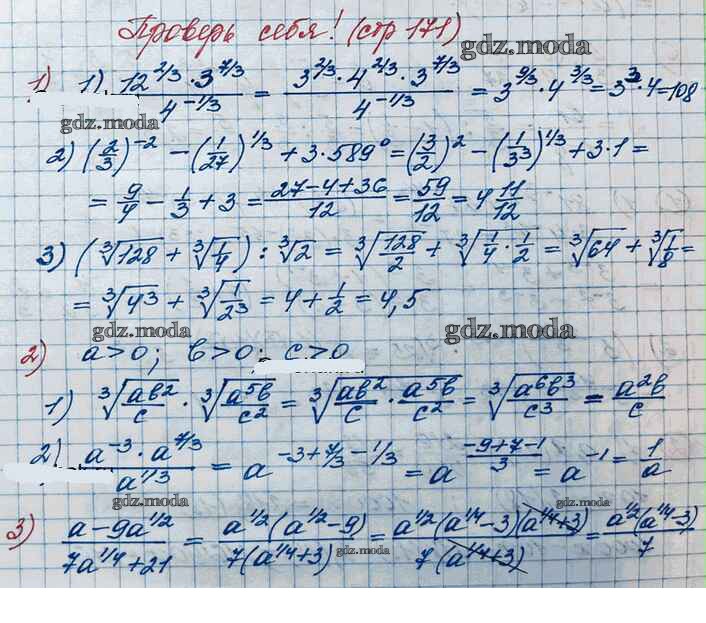 Проверь себя! (стр 171)
gdz.moda
1) 1) 12^{2/3} · 3^{7/3} / 4^{-1/3} = 3^{2/3} · 4^{2/3} · 3^{7/3} / 4^{-1/3} = 3^{9/3} · 4^{3/3} = 3^3 · 4 = 108
gdz.moda
2) (2/3)^{-2} - (1/27)^{1/3} + 3 · 589^0 = (3/2)^2 - (1/3^3)^{1/3} + 3 · 1 =
= 9/4 - 1/3 + 3 = 27-4+36 / 12 = 59/12 = 4 11/12
3) (∛128 + ∛(1/4)) : ∛2 = ∛(128/2) + ∛(1/4 · 1/2) = ∛64 + ∛(1/8) =
= ∛(4^3) + ∛(1/2^3) = 4 + 1/2 = 4,5
gdz.moda gdz.moda
2) a > 0; b > 0; c > 0
1) ∛(ab^2/c) · ∛(a^5b/c^2) = ∛(ab^2/c · a^5b/c^2) = ∛(a^6b^3/c^3) = a^2b/c
2) a^{-3} · a^{7/3} / a^{1/3} = a^{-3+7/3-1/3} = a^{(-9+7-1)/3} = a^{-1} = 1/a
gdz.moda gdz.moda
3) a - 9a^{1/2} / 7a^{1/4} + 21 = a^{1/2}(a^{1/2} - 9) / 7(a^{1/4} + 3) = a^{1/2}(a^{1/4} - 3)(a^{1/4} + 3) / 7(a^{1/4} + 3) = a^{1/2}(a^{1/4} - 3) / 7
gdz.moda